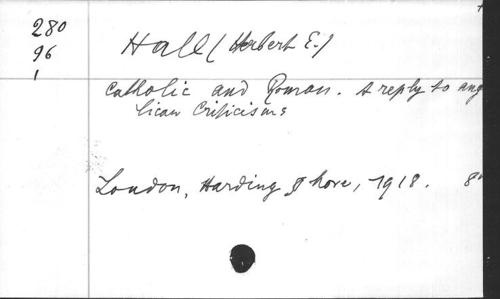 280
96
1
Hall (Herbert E.)
Catholic and Roman. A reply to Ang
lican Criticisms
London, Harding & More, 1918. 8°